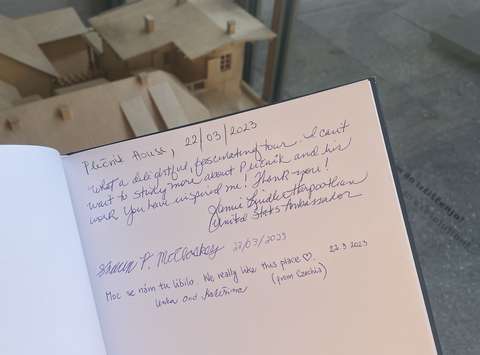 Plečnik House, 22/03/2023
What a delightful, fascinating tour. I can't
wait to study more about Plečnik and his
work. You have inspired me! Thank you!
Jamie Lindler Harpootlian
United States Ambassador
P. McCloskey 22/03/2023
Moc se nám tu líbilo. We really like this place ♡. 22.3 2023
Lenka and Kateřina (from Czechia)